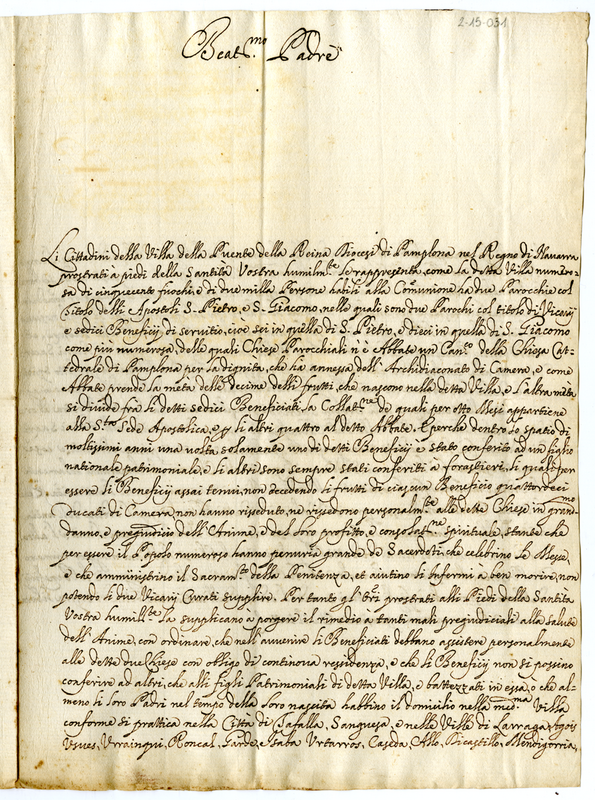 2-15-031
Beatmo. Padre
Li Cittadini della Villa della Puente della Reina Diocesi di Pamplona nel Regno di Navarra
prostrati a piedi della Santità Vostra humilmte. le rappresenta, come la detta Villa numero-
sa di cinquecento fuochi, e di due milla Persone habili alla Comunione ha due Parocchie col
titolo delli Apostoli S. Pietro, e S. Giacomo, nelle quali sono due Parochi col titolo di Vicarij
e sedici Beneficij di servitio, cioè sei in quella di S. Pietro, e dieci in quella di S. Giacomo
come più numerosa, delle quali Chiese Parocchiali n'è Abbate un Canco. della Chiesa Cat-
tedrale di Pamplona per la dignità, che hà annessa dell'Archidiaconato di Camera, e come
Abbate prende la metà delle decime delli frutti, che nascono nella detta Villa, e l'altra metà
si divide frà li detti sedici Beneficiati, la Collatne. de quali per otto Mesi appartiene
alla Sta. Sede Apostolica, e p li altri quattro al detto Abbate. E perche dentro lo spatio di
moltissimi anni una volta solamente uno di detti Beneficij è stato conferito ad un figlio
nationale patrimoniale, e li altri sono sempre stati conferiti a forastieri, li quali per
essere li Beneficij assai tenui, non eccedendo li frutti di ciascun Beneficio quattordeci
Ducati di Camera, non hanno risieduto, ne risiedono personalmte. alle dette Chiese in grandmo.
danno, e pregiudicio dell'Anime, e del loro profitto, e consolatne. spirituale, stante che
per essere il Popolo numeroso hanno penuria grande de Sacerdoti, che celebrino le Messe,
e che amministrino il Sacramto. della Penitenza, et aiutino li Infermi a ben morire, non
potendo li due Vicarij Curati supplire. Per tanto gl' prostrati alli Piedi della Santità
Vostra humilmte. la supplicano a porgere il rimedio a tanti mali pregiudiciali alla salute
dell'Anime, con ordinare, che nell'avvenire li Beneficiati debbano assistere personalmente
alle dette due Chiese con obligo di continova residenza, e che li Beneficij non si possino
conferire ad altri, che alli figli Patrimoniali di detta Villa, e battezzati in essa, o che al-
meno li loro Padri nel tempo della loro nascita habbino il domicilio nella medma. Villa
conforme si prattica nella Città di Tafalla, Sanguesa, e nelle Ville di Larraga,
Usues, Urrainqui, Roncal, Garde, e Isaba Urtarros, Caseda, Allo, Dicastillo, Mendigorria,